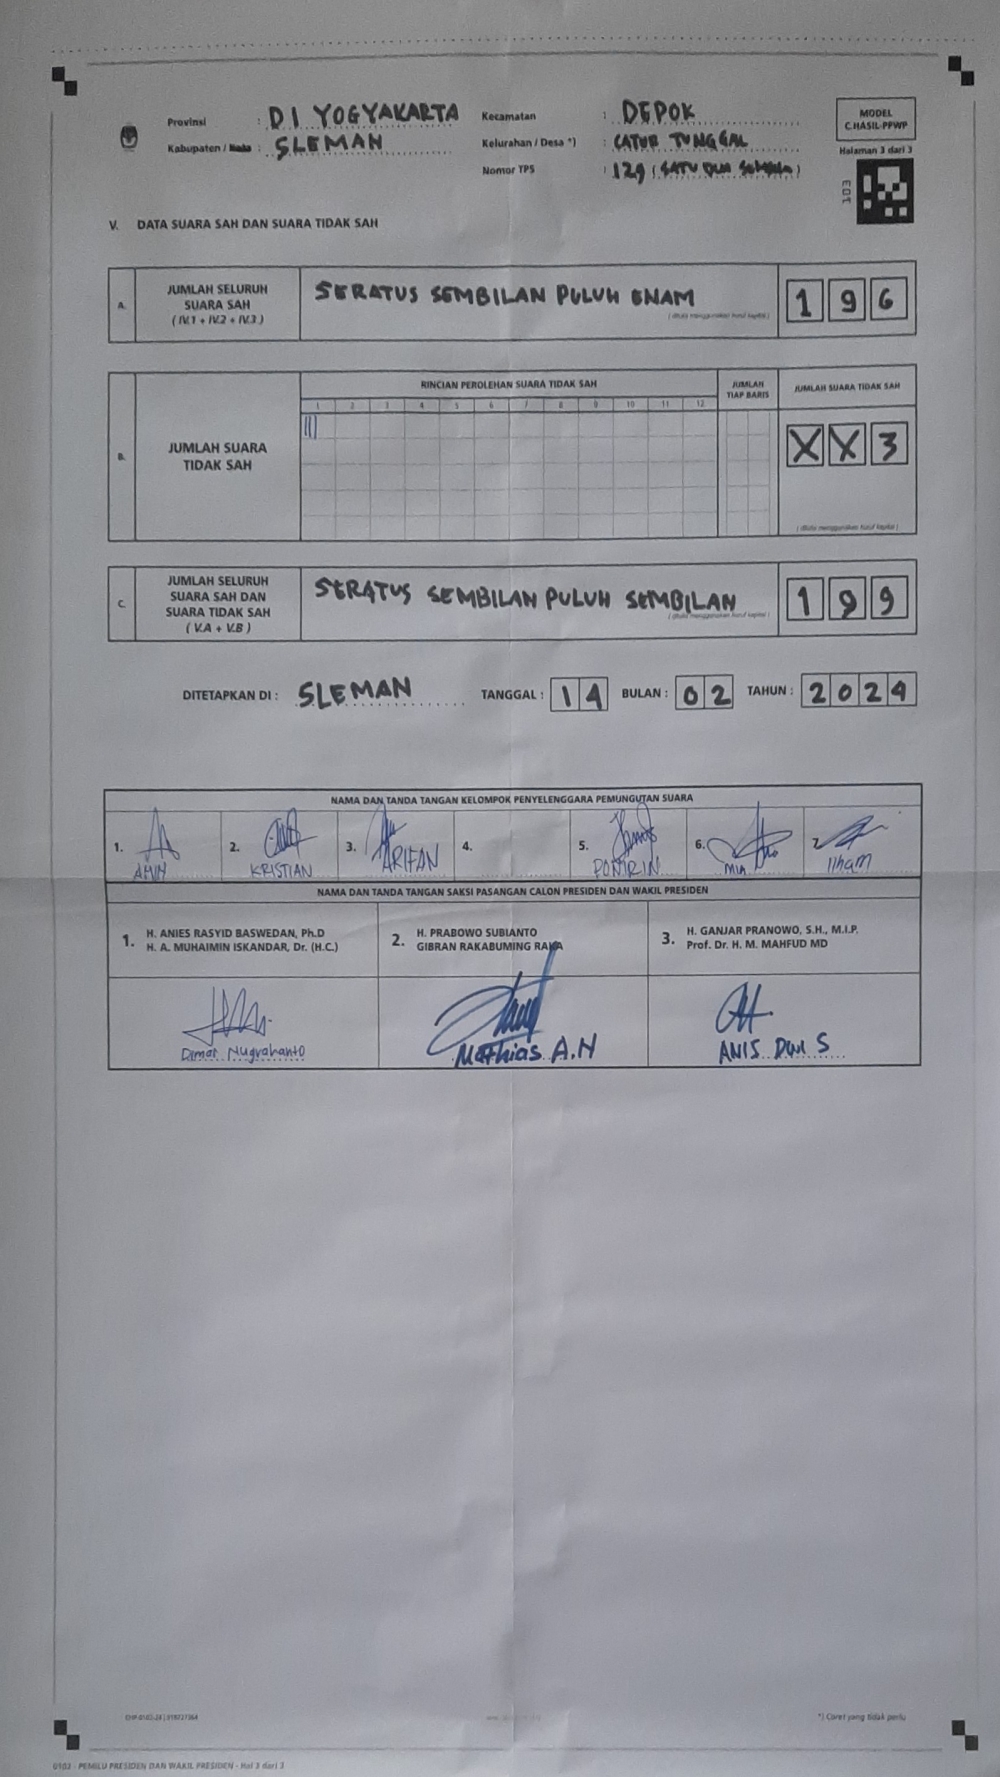 Provinsi : D I YOGYAKARTA
Kabupaten / Kota : SLEMAN
Kecamatan : DEPOK
Kelurahan / Desa *) : CATUR TUNGGAL
Nomor TPS : 129 (SATU DUA SEMBILAN)
MODEL
C.HASIL-PPWP
Halaman 3 dari 3
V. DATA SUARA SAH DAN SUARA TIDAK SAH
A. JUMLAH SELURUH
SUARA SAH
( IV.1 + IV.2 + IV.3 )
SERATUS SEMBILAN PULUH ENAM
( ditulis menggunakan huruf kapital )
1 9 6
B. JUMLAH SUARA
TIDAK SAH
RINCIAN PEROLEHAN SUARA TIDAK SAH
1 2 3 4 5 6 7 8 9 10 11 12
JUMLAH
TIAP BARIS
JUMLAH SUARA TIDAK SAH
X X 3
( ditulis menggunakan huruf kapital )
C. JUMLAH SELURUH
SUARA SAH DAN
SUARA TIDAK SAH
( V.A + V.B )
SERATUS SEMBILAN PULUH SEMBILAN
( ditulis menggunakan huruf kapital )
1 9 9
DITETAPKAN DI : SLEMAN TANGGAL : 14 BULAN : 02 TAHUN : 2024
NAMA DAN TANDA TANGAN KELOMPOK PENYELENGGARA PEMUNGUTAN SUARA
1. 2. 3. 4. 5. 6. 7.
AMIN KRISTIAN ARIFAN PONIRIN MIA Ilham
NAMA DAN TANDA TANGAN SAKSI PASANGAN CALON PRESIDEN DAN WAKIL PRESIDEN
1. H. ANIES RASYID BASWEDAN, Ph.D
H. A. MUHAIMIN ISKANDAR, Dr. (H.C.)
2. H. PRABOWO SUBIANTO
GIBRAN RAKABUMING RAKA
3. H. GANJAR PRANOWO, S.H., M.I.P.
Prof. Dr. H. M. MAHFUD MD
Dimas Nugrahanto
Mathias A.N
ANIS DWI S
*) Coret yang tidak perlu
0103 - PEMILU PRESIDEN DAN WAKIL PRESIDEN - Hal 3 dari 3